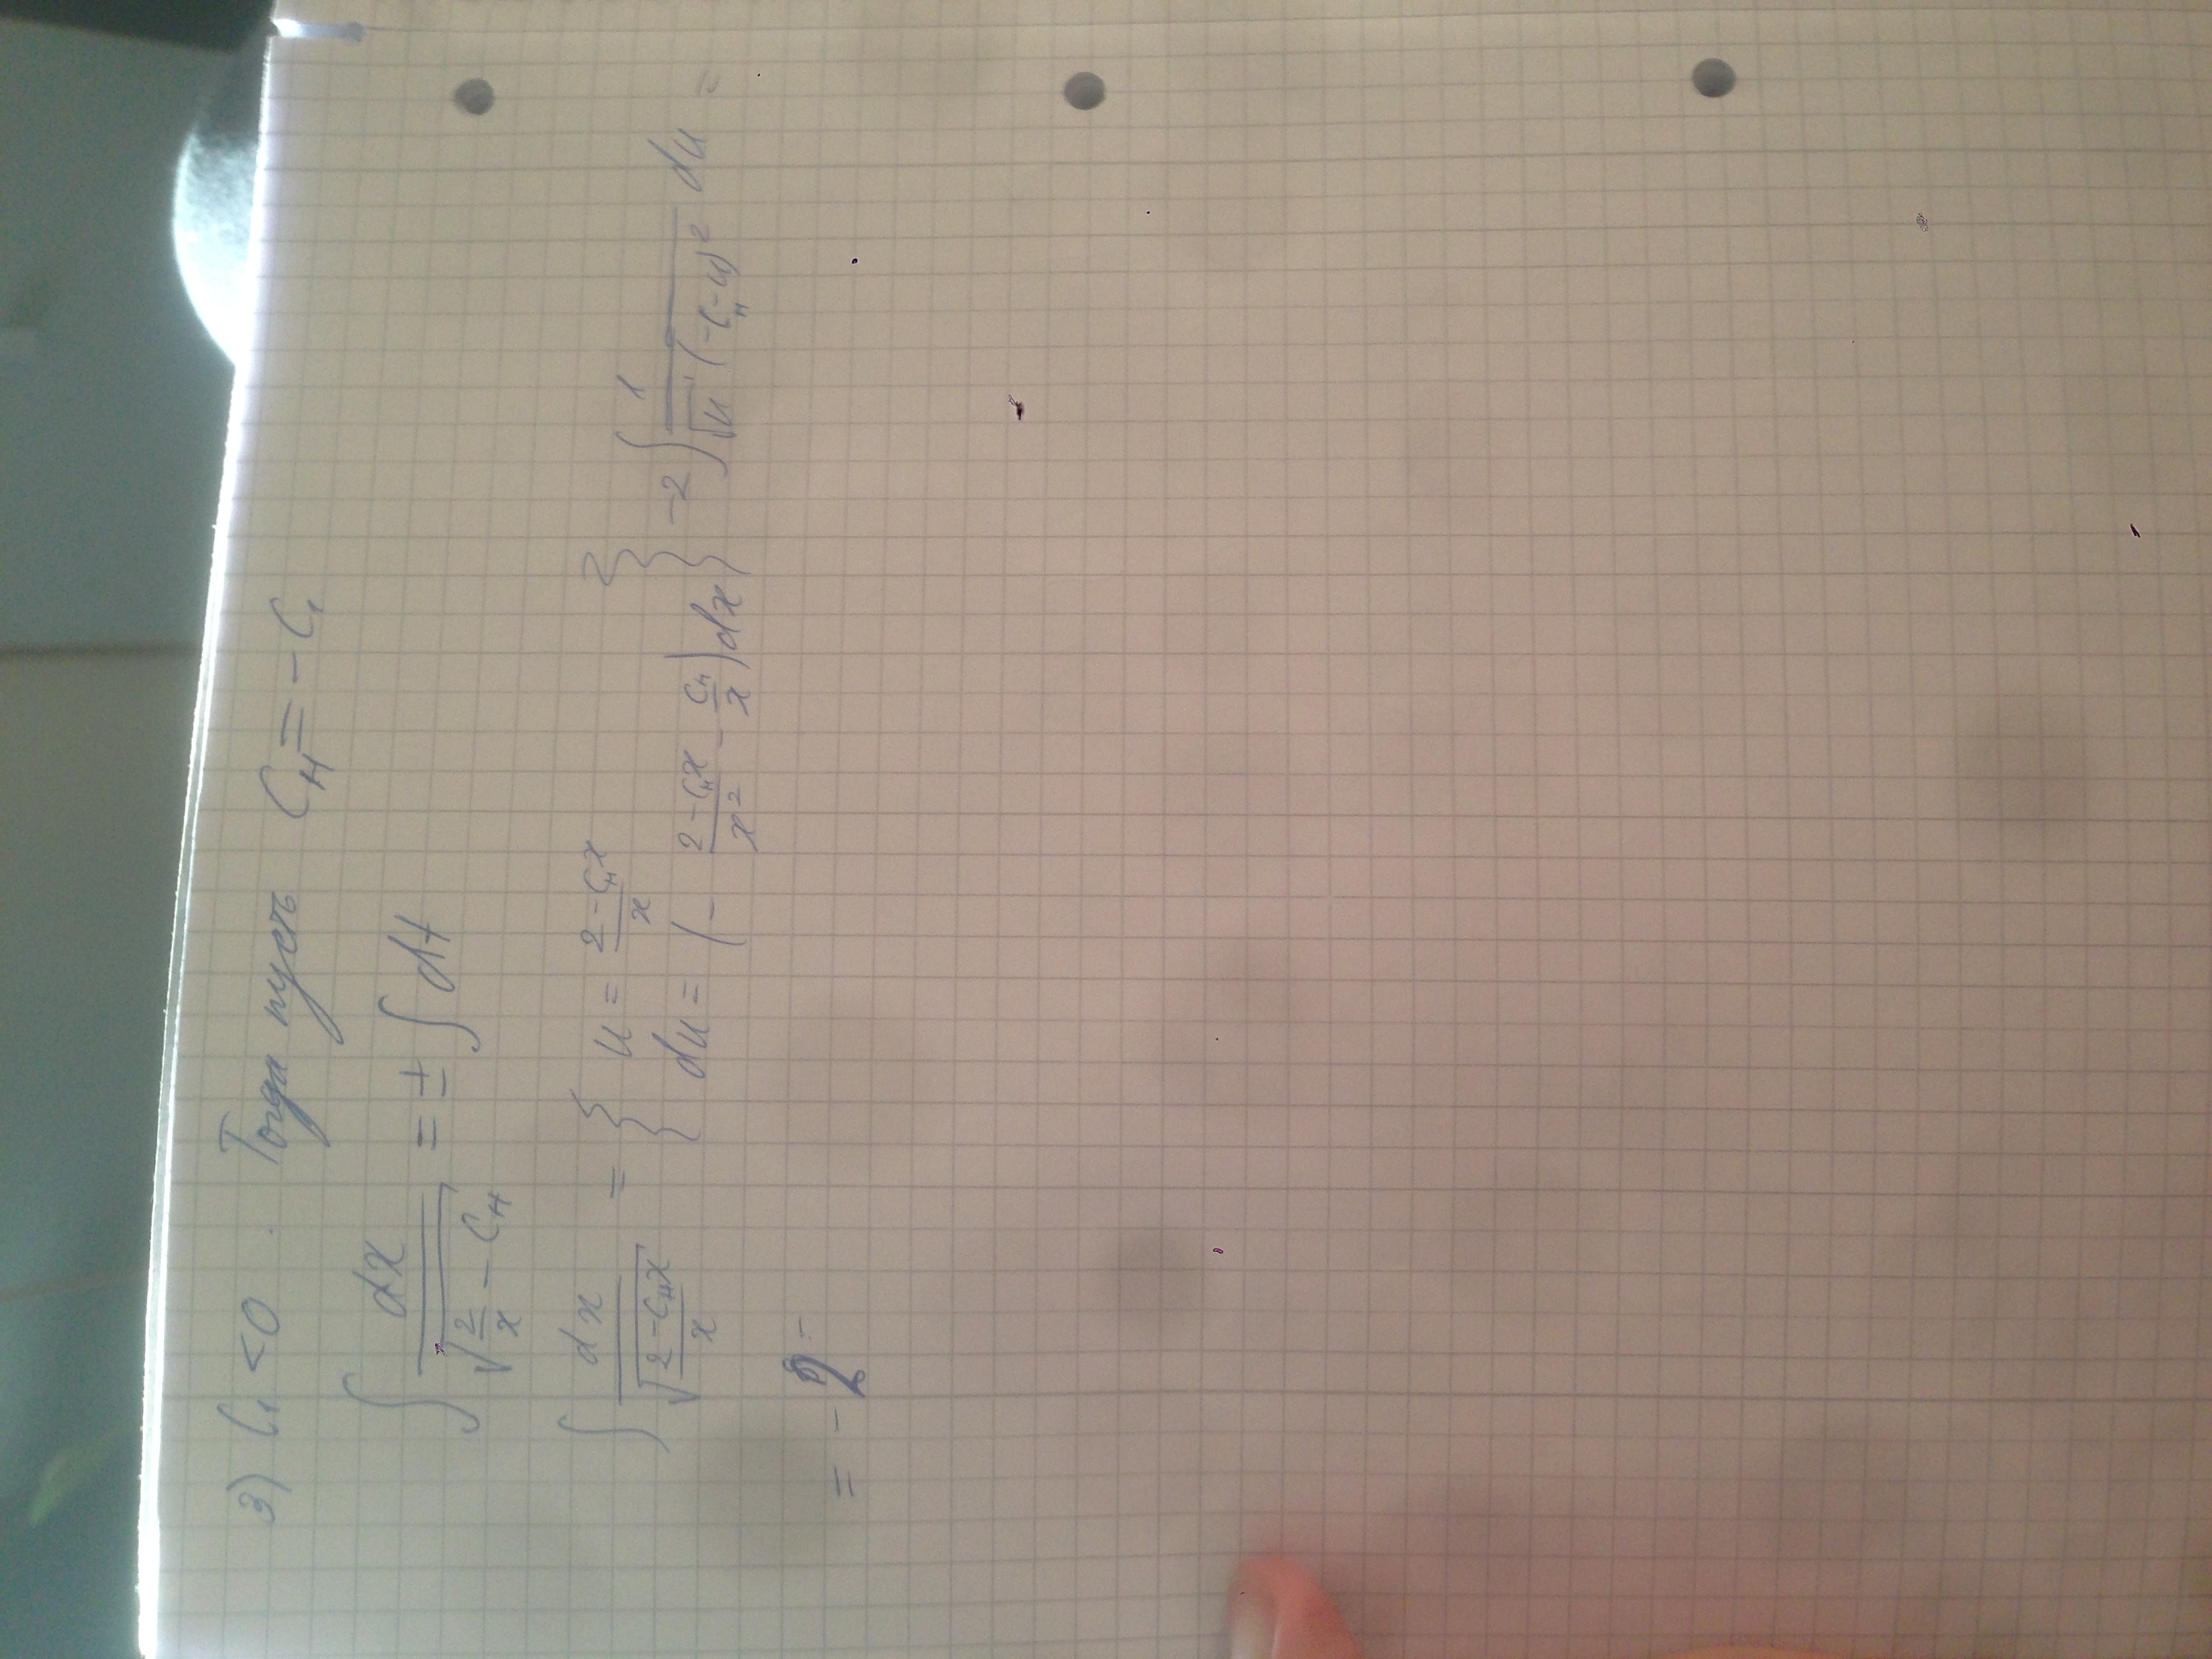 3) C₁ < 0 . Тогда пусть Cн = - C₁
∫ dx / √(2/x - Cн) = ± ∫ dt
∫ dx / √((2 - Cнx)/x) = { u = (2 - Cнx)/x
du = (- (2 - Cнx)/x² - Cн/x) dx } -2 ∫ 1 / (√u (-Cн - u)²) du =
= - 2